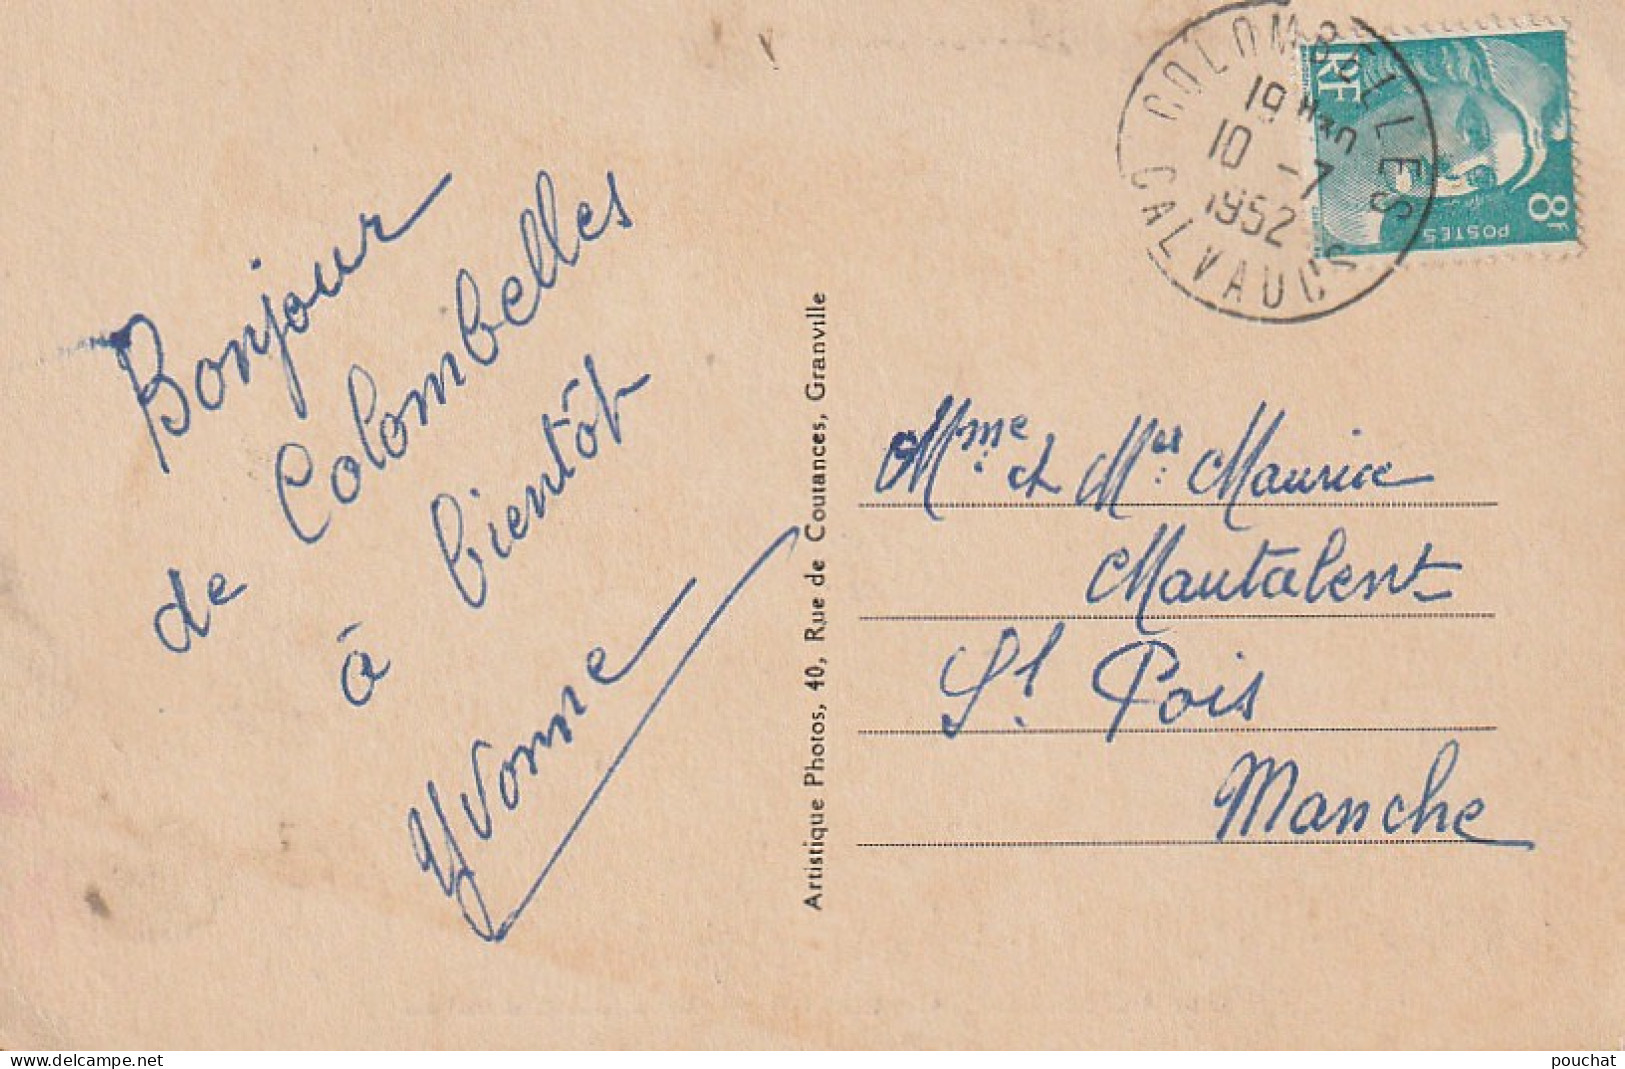 Bonjour
de Colombelles
à bientôt
Yvonne
Artistique Photos, 40, Rue de Coutances, Granville
COLOMBELLES
19H
10 -7
1952
CALVADOS
RF
POSTES
8f
Mme et Mr Maurice
Mautalent
St. Pois
Manche
delcampe.net
pouchat